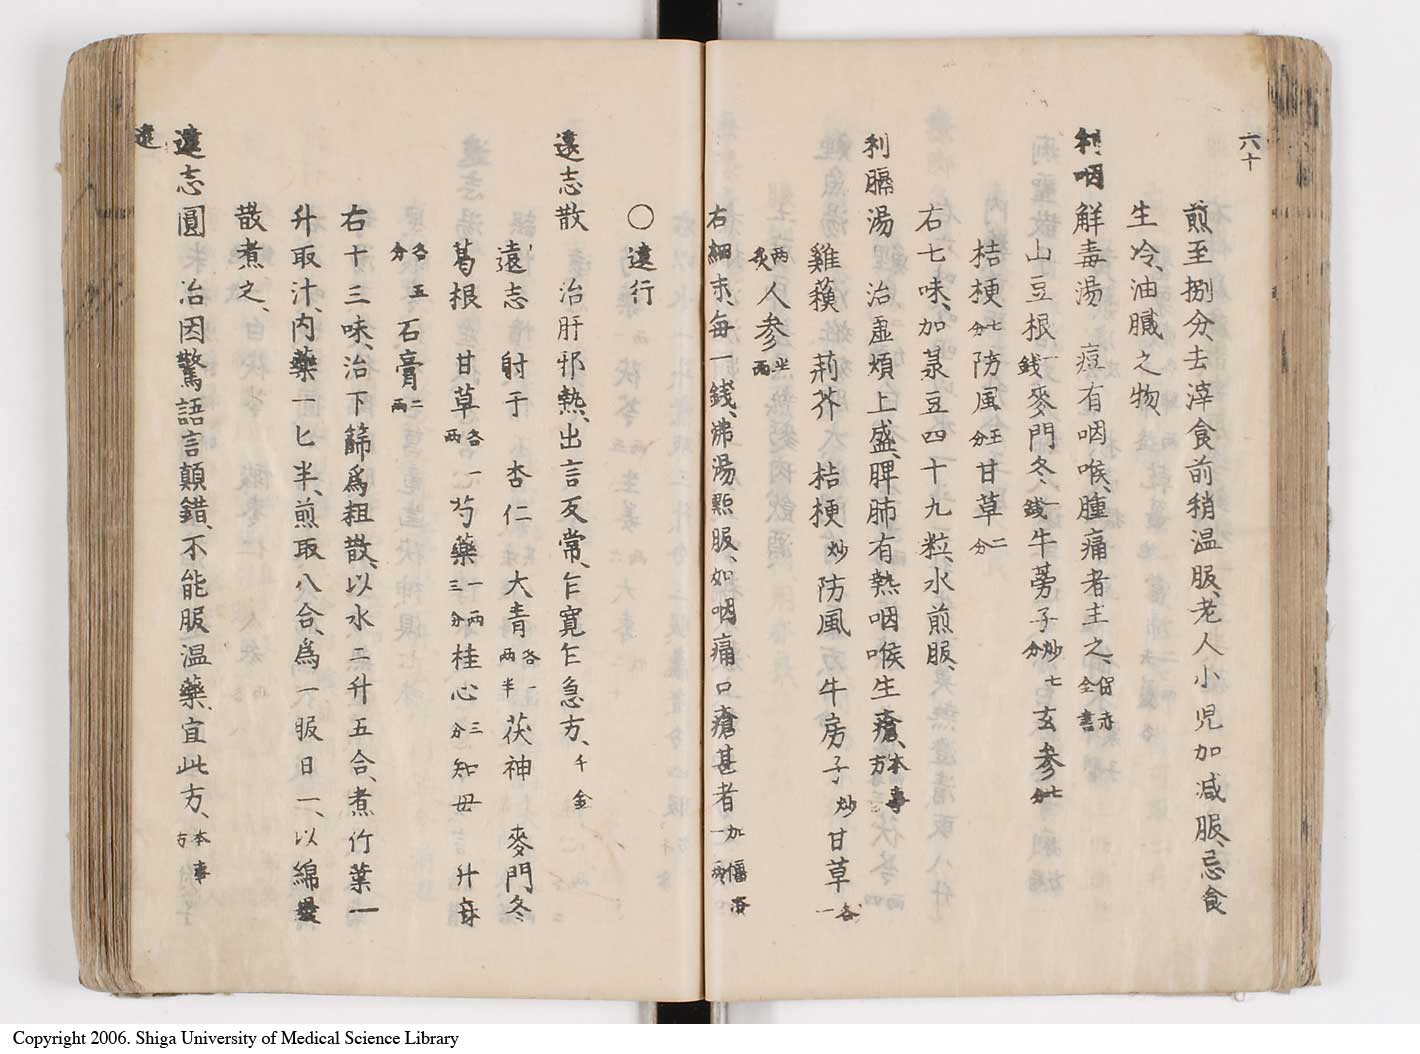 六十
煎至捌分、去滓食前稍温服、老人小児加减服、忌食
生冷、油膩之物、
利咽解毒湯 痘有咽喉、腫痛者主之、保赤全書
山豆根一錢麥門冬一錢牛蒡子炒七分玄参七分
桔梗七分防風五分甘草二分
右七味、加菉豆四十九粒、水煎服、
利膈湯 治虚煩上盛、脾肺有熱咽喉生瘡、本事方
雞蘓 荊芥 桔梗炒防風 牛房子炒甘草各一
兩炙人参半兩
右細末、每一錢、沸湯點服、如咽痛口瘡甚者加僵蚕一兩
○遠行
遠志散 治肝邪熱、出言反常、乍寛乍急方、千金
遠志 射干 杏仁 大青各一兩半茯神 麥門冬
葛根 甘草各一兩芍藥一兩三分桂心三分知母 升麻
各五分石膏二兩
右十三味、治下篩爲粗散、以水二升五合、煮竹葉一
升取汁、内藥一匕半、煎取八合、爲一服日一、以綿裹
散煮之、
遠志圓 治因驚語言顛錯、不能服温藥、宜此方、本事方
遠
Copyright 2006. Shiga University of Medical Science Library